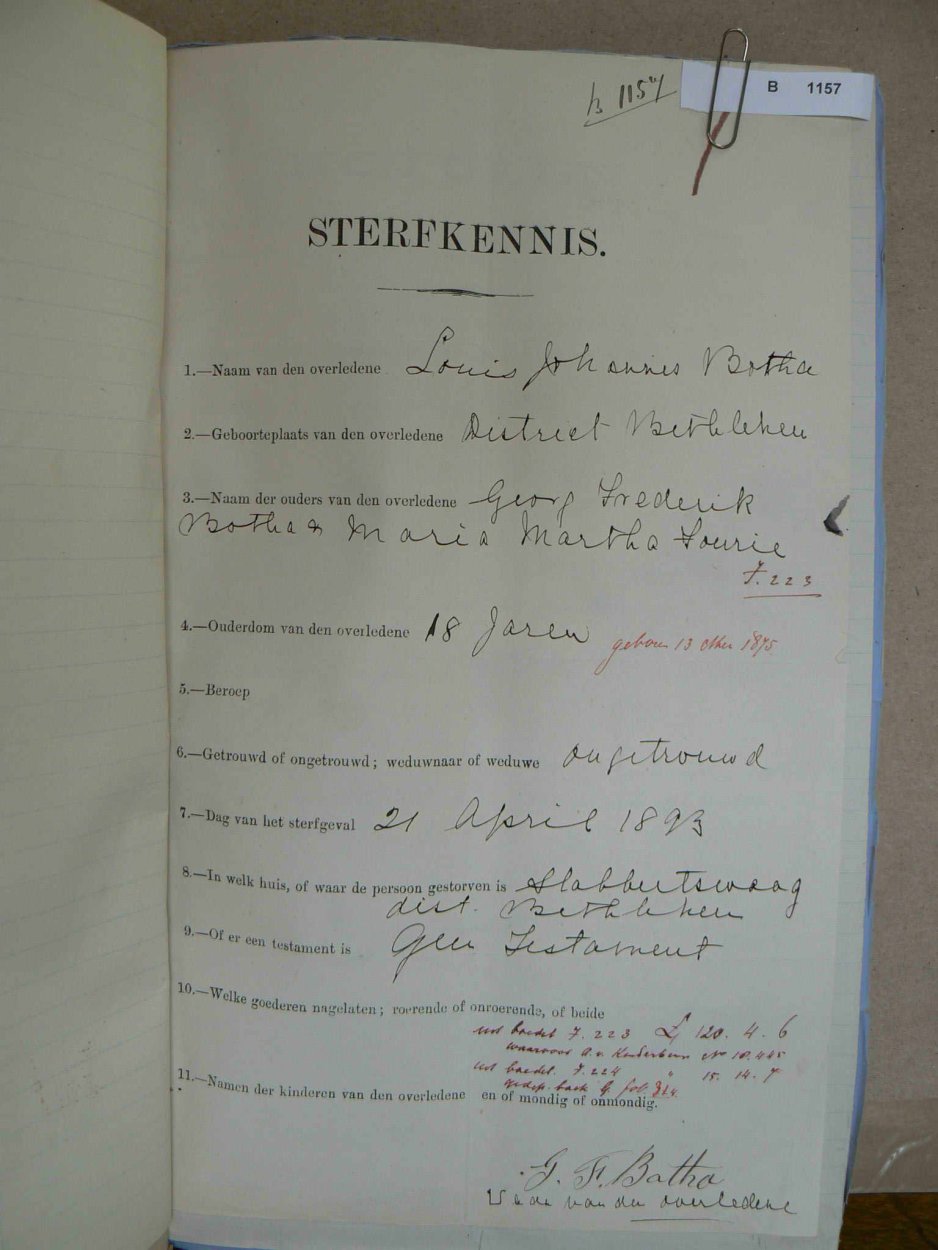 B 1157
B 1157
STERFKENNIS.
1.—Naam van den overledene Louis Johannes Botha
2.—Geboorteplaats van den overledene District Bethlehem
3.—Naam der ouders van den overledene Georg Frederik
Botha & Maria Martha Lourie
F. 223
4.—Ouderdom van den overledene 18 Jaren geboren 13 1875
5.—Beroep
6.—Getrouwd of ongetrouwd; weduwnaar of weduwe ongetrouwd
7.—Dag van het sterfgeval 21 April 1893
8.—In welk huis, of waar de persoon gestorven is Slabbertswaag
dist. Bethlehem
9.—Of er een testament is Geen Testament
10.—Welke goederen nagelaten; roerende of onroerende, of beide
uit boedel F. 223 £ 120. 4. 6
waarvoor No 10.445
uit boedel F. 224 " 15. 14. 7
boek G fol.
11.—Namen der kinderen van den overledene en of mondig of onmondig.
G. F. Botha
Vader van den overledene